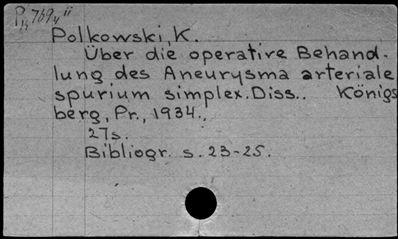 Polkowski, K.
Über die operative Behand-
lung des Aneurysma arteriale
spurium simplex. Diss.. Königs
berg, Pr., 1934.,
27s.
Bibliogr. s. 23-25.